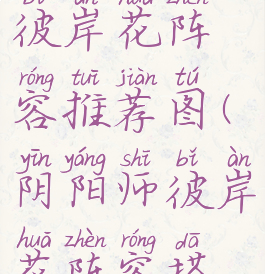 bǐ àn huā zhèn
彼岸花阵
róng tuī jiàn tú
容推荐图(
yīn yáng shī bǐ àn
阴阳师彼岸
huā zhèn róng dā
花阵容搭